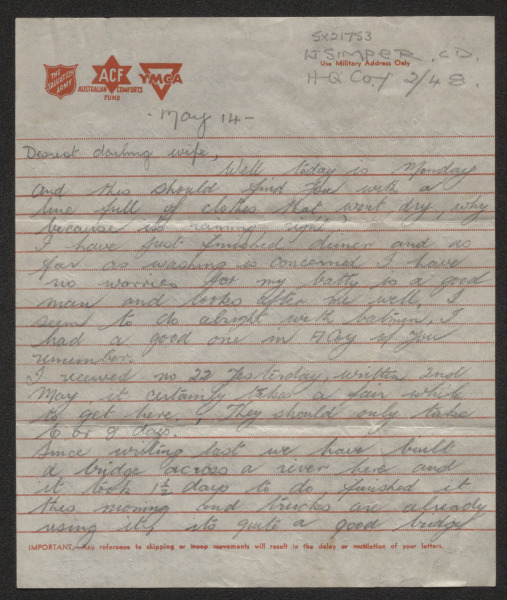 SX21753
Lt SIMPER. C D.
Use Military Address Only
H.Q. Coy 2/48.
THE SALVATION ARMY
ACF
AUSTRALIAN COMFORTS FUND
YMCA
May 14-
Dearest darling wife,
Well today is Monday
and this should find you with a
line full of clothes that wont dry, why
because it's raining, right?
I have just finished dinner and as
far as washing is concerned I have
no worries for my batty is a good
man and looks after me well, I
seem to do alright with batmen, I
had a good one in A Coy if you
remember.
I received no 22 yesterday, written 2nd
May, it certainly takes a fair while
to get here, They should only take
6 or 8 days.
Since writing last we have built
a bridge across a river here and
it took 1½ days to do finished it
this morning and trucks are already
using it, its quite a good bridge
IMPORTANT:-Any reference to shipping or troop movements will result in the delay or mutilation of your letters.